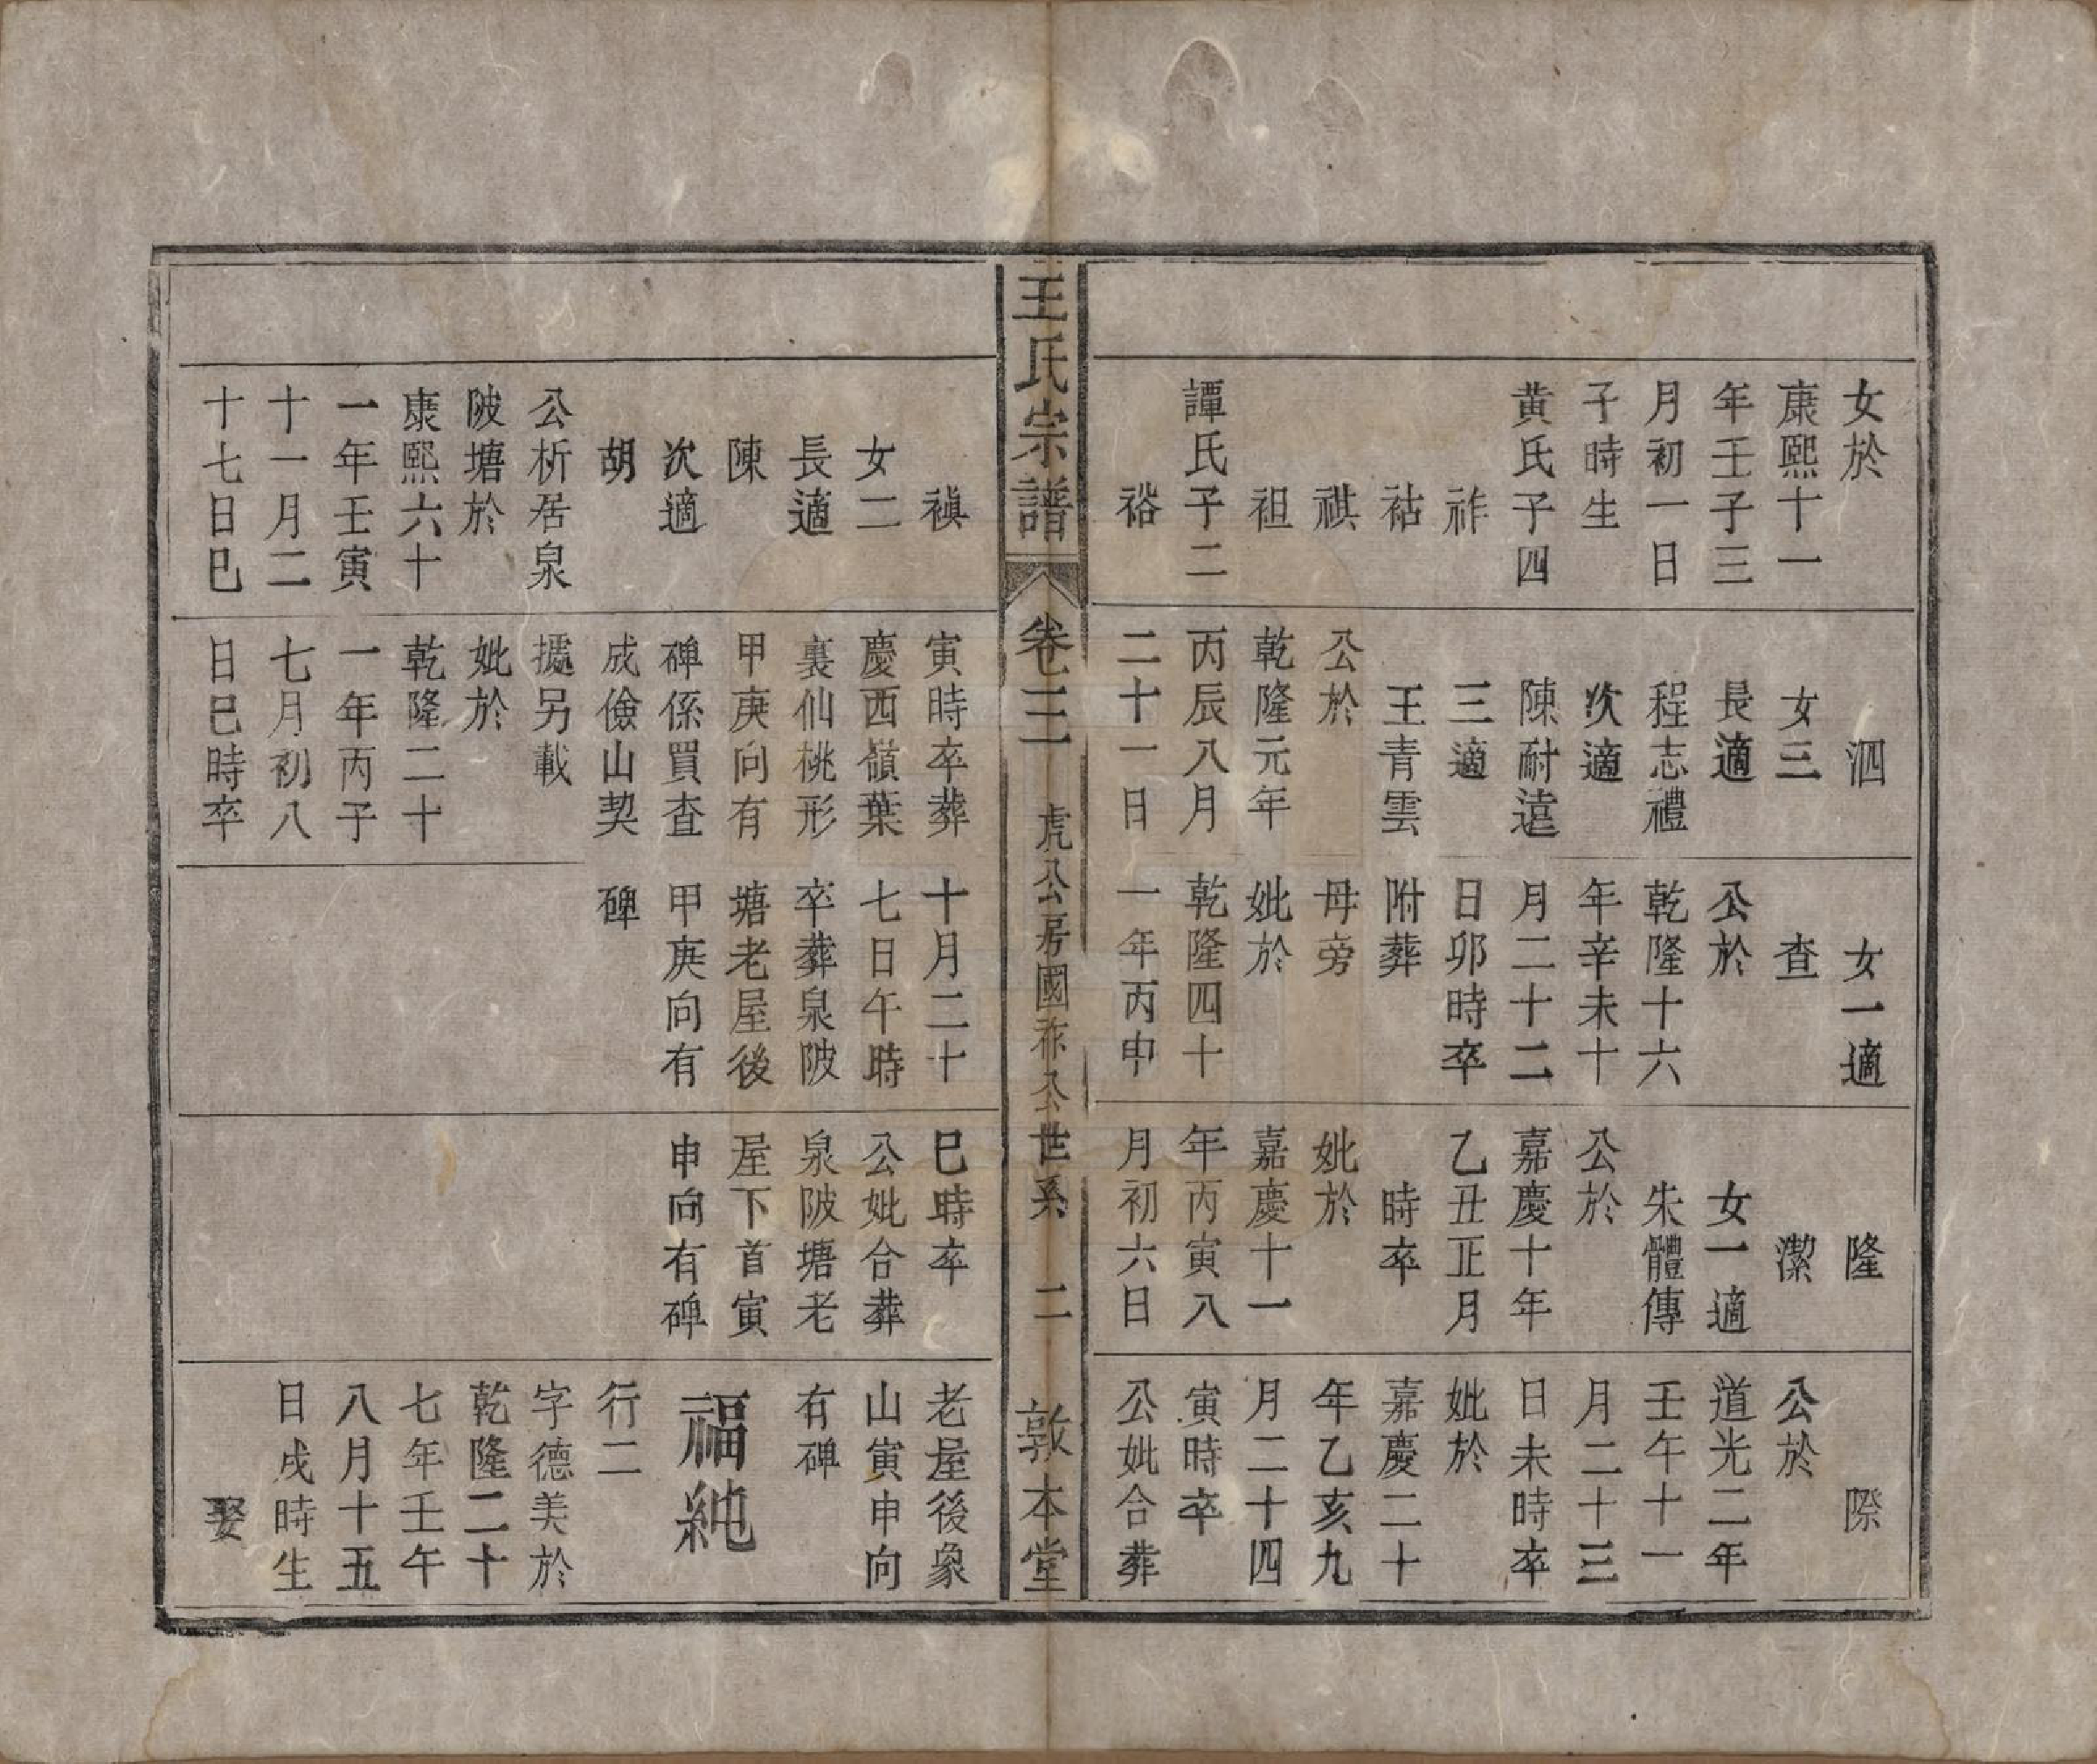 女於
康熙十一
年壬子三
月初一日
子時生
黄氏子四
祚
祜
祺
祖
譚氏子二
裕
泗
女三
長適
程志禮
次適
陳耐遠
三適
王青雲
公於
乾隆元年
丙辰八月
二十一日
女一適
查
公於
乾隆十六
年辛未十
月二十二
日卯時卒
附葬
母旁
妣於
乾隆四十
一年丙申
隆
潔
女一適
朱體傳
公於
嘉慶十年
乙丑正月
時卒
妣於
嘉慶十一
年丙寅八
月初六日
際
公於
道光二年
壬午十一
月二十三
日未時卒
妣於
嘉慶二十
年乙亥九
月二十四
寅時卒
公妣合葬
王氏宗譜
卷三
虎公房國祚公世系
二
敦本堂
禛
女二
長適
陳
次適
胡
公析居泉
陂塘於
康熙六十
一年壬寅
十一月二
十七日巳
寅時卒葬
慶西嶺葉
裏仙桃形
甲庚向有
碑係買查
成儉山契
據另載
妣於
乾隆二十
一年丙子
七月初八
日巳時卒
十月二十
七日午時
卒葬泉陂
塘老屋後
甲庚向有
碑
巳時卒
公妣合葬
泉陂塘老
屋下首寅
申向有碑
老屋後象
山寅申向
有碑
福純
行二
字德美於
乾隆二十
七年壬午
八月十五
日戌時生
娶